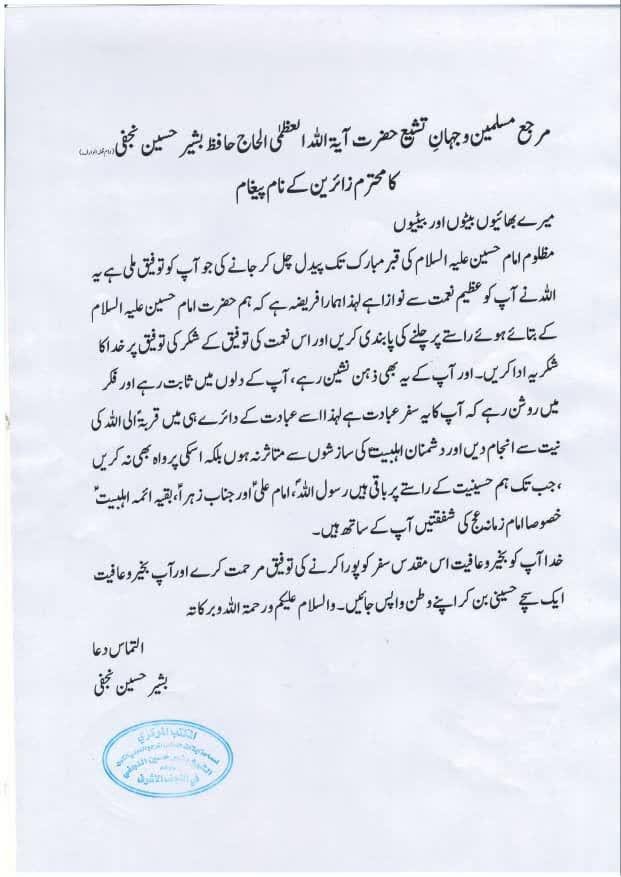 مرجع مسلمین و جہانِ تشیع حضرت آیۃ اللہ العظمٰی الحاج حافظ بشیر حسین نجفی
کا محترم زائرین کے نام پیغام
میرے بھائیوں بیٹوں اور بیٹیوں
مظلوم امام حسین علیہ السلام کی قبر مبارک تک پیدل چل کر جانے کی جو آپ کو توفیق ملی ہے یہ
اللہ نے آپ کو عظیم نعمت سے نوازا ہے لہذا ہمارا فریضہ ہے کہ ہم حضرت امام حسین علیہ السلام
کے بتائے ہوئے راستے پر چلنے کی پابندی کریں اور اس نعمت کی توفیق کے شکر کی توفیق پر خدا کا
شکریہ ادا کریں۔ اور آپ کے یہ بھی ذہن نشین رہے، آپ کے دلوں میں ثابت رہے اور فکر
میں روشن رہے کہ آپ کا یہ سفر عبادت ہے لہذا اسے عبادت کے دائرے ہی میں قربۃً الی اللہ کی
نیت سے انجام دیں اور دشمنان اہلبیتؑ کی سازشوں سے متاثر نہ ہوں بلکہ اسکی پرواہ بھی نہ کریں
،جب تک ہم حسینیت کے راستے پر باقی ہیں رسول اللہؐ، امام علیؑ اور جناب زہراؑ، بقیہ ائمہ اہلبیتؑ
خصوصا امام زمانہ عج کی شفقتیں آپ کے ساتھ ہیں۔
خدا آپ کو بخیر و عافیت اس مقدس سفر کو پورا کرنے کی توفیق مرحمت کرے اور آپ بخیر و عافیت
ایک سچے حسینی بن کر اپنے وطن واپس جائیں۔ والسلام علیکم ورحمۃ اللہ وبرکاتہ
التماس دعا
بشیر حسین نجفی
المكتب المركزي
الشيخ بشير حسين النجفي
في النجف الاشرف